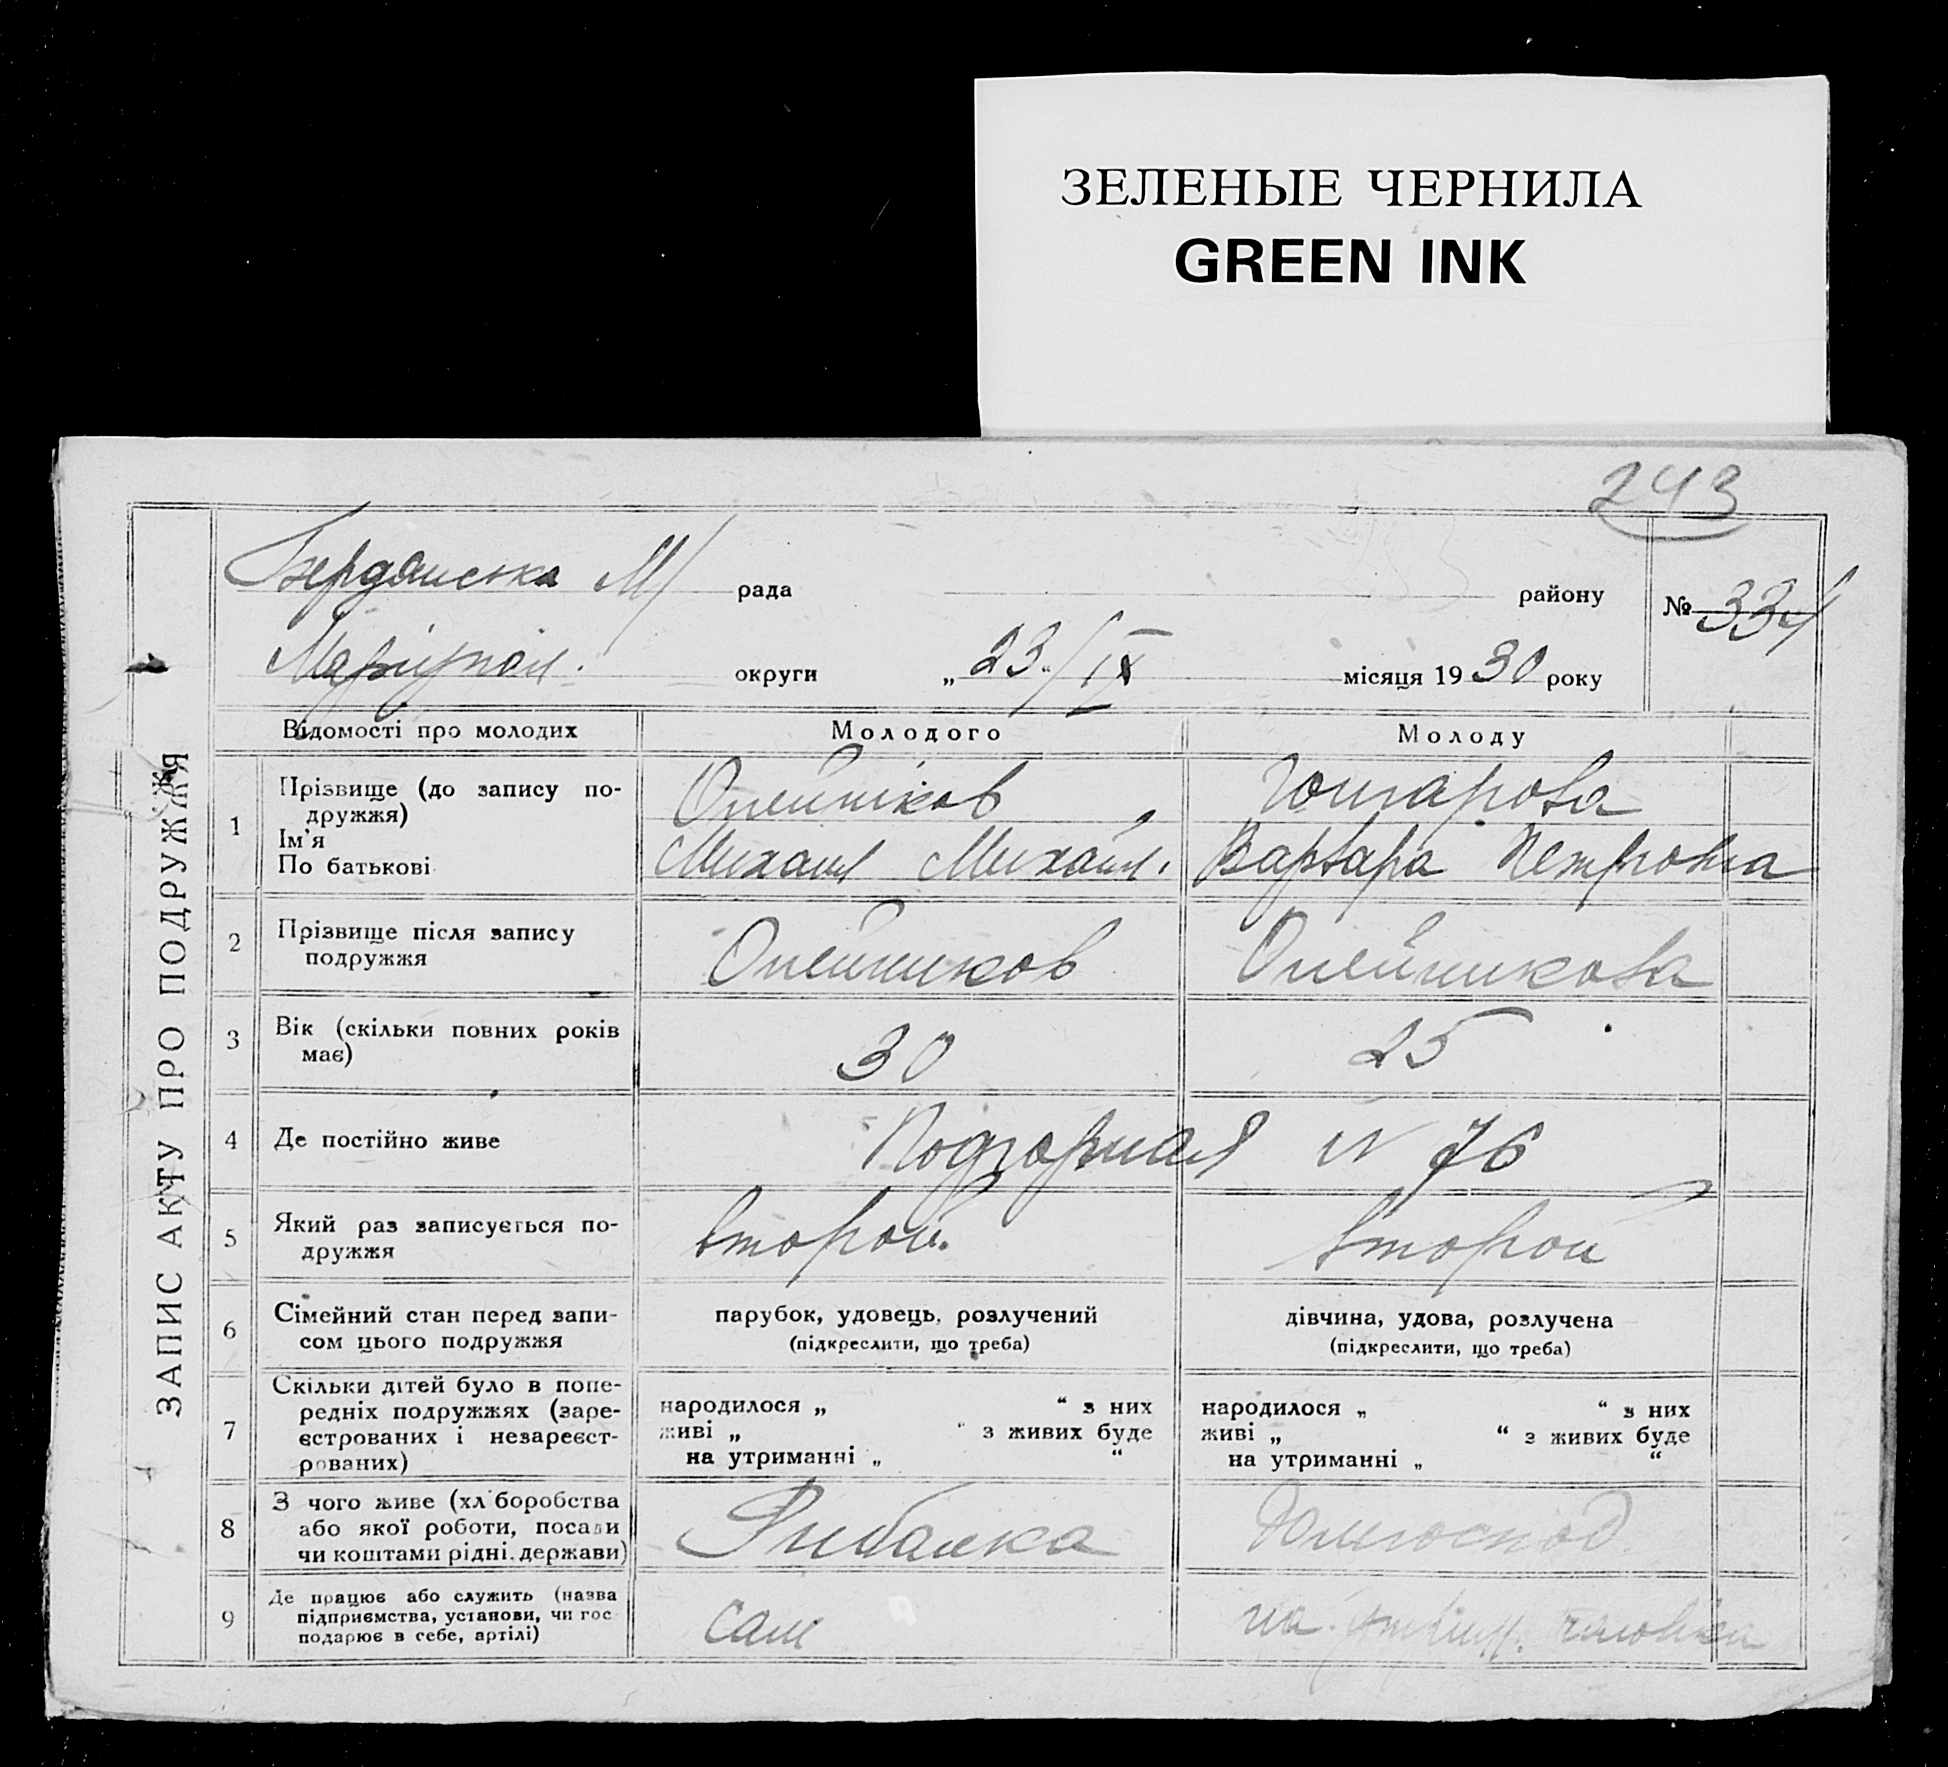 ЗЕЛЕНЫЕ ЧЕРНИЛА
GREEN INK
243
Бердянська М/ рада району
№ 334
Маріупол. округи „ 23./IX місяця 1930 року
ЗАПИС АКТУ ПРО ПОДРУЖЖЯ
Відомості про молодих Молодого Молоду
1 Прізвище (до запису по-
дружжя)
Ім'я
По батькові
Олейніков
Михаил Михайл.
Гончарова
Варвара Петровна
2 Прізвище після запису
подружжя
Олейников Олейникова
3 Вік (скільки повних років
має)
30 25
4 Де постійно живе Подгорная N 76
5 Який раз записується по-
дружжя
второй. второй
6 Сімейний стан перед запи-
сом цього подружжя
парубок, удовець, розлучений
(підкреслити, що треба)
дівчина, удова, розлучена
(підкреслити, що треба)
7 Скільки дітей було в попе-
редніх подружжях (заре-
єстрованих і незареєст-
рованих)
народилося „ “ з них
живі „ “ з живих буде
на утриманні „ “
народилося „ “ з них
живі „ “ з живих буде
на утриманні „ “
8 З чого живе (хліборобства
або якої роботи, посади
чи коштами рідні. держави)
Рибалка
Домгоспод.
9 Де працює або служить (назва
підприємства, установи, чи гос
подарює в себе, артілі)
сам
на утрим. чоловіка